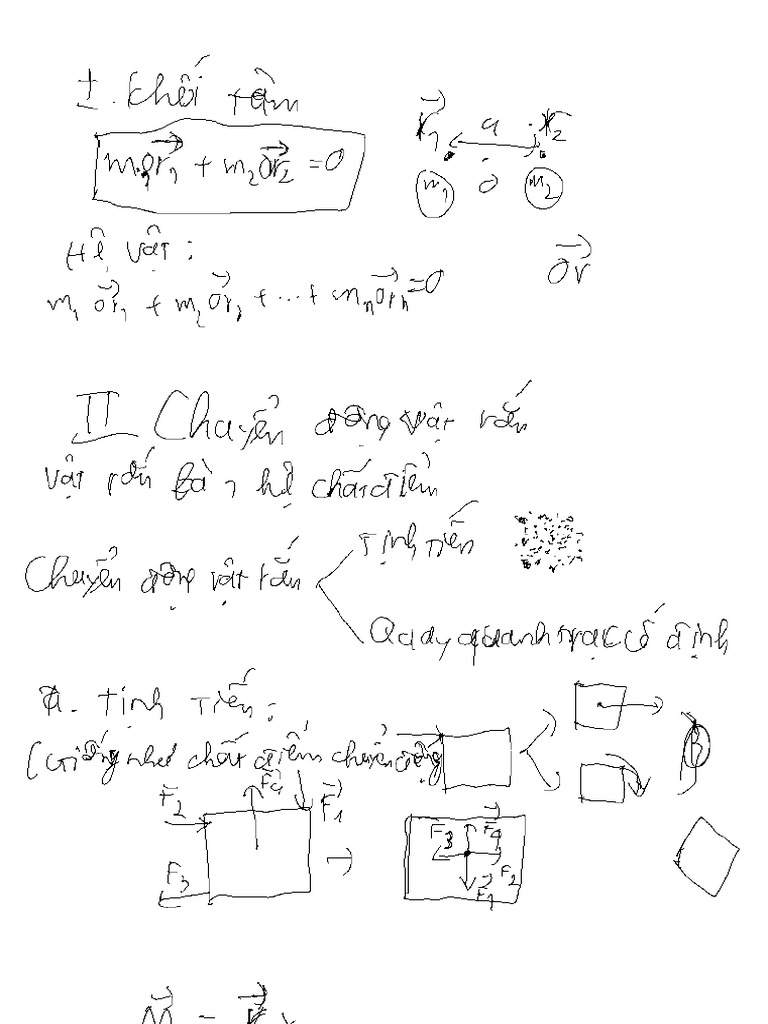 I. Khối tâm
m₁Or₁⃗ + m₂Or₂⃗ = 0
r₁⃗ a r₂⃗
m₁ O m₂
Hệ vật:
Or⃗
m₁Or₁⃗ + m₂Or₂⃗ + ... + mₙOrₙ⃗ = 0
II Chuyển động vật rắn
vật rắn là 1 hệ chất điểm
Chuyển động vật rắn
Tịnh tiến
Quay quanh trục cố định
a. Tịnh tiến:
(Giống như chất điểm chuyển động
F₂⃗ F₄⃗ F₁⃗
F₃
F₃ F₄⃗
F₂
F₁⃗
M⃗ =